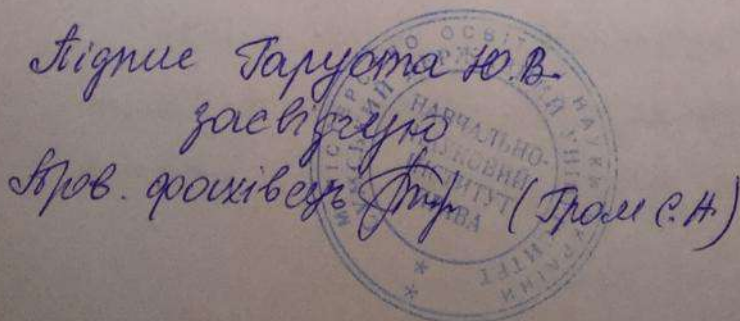 Підпис Гаруста Ю.В.
засвідчую
Пров. фахівець (Гром С.А)
МІНІСТЕРСТВО ОСВІТИ І НАУКИ УКРАЇНИ
НАВЧАЛЬНО-
НАУКОВИЙ
ІНСТИТУТ
ПРАВА